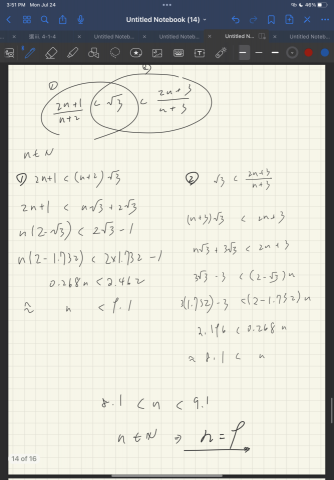 3:51 PM Mon Jul 24
46%
Untitled Notebook (14)
4-1-4
Untitled Noteb...
Untitled Noteb...
Untitled N...
Untitled Noteb...
① ②
2n+1/n+2 < √3 < 2n+3/n+3
n∈N
① 2n+1 < (n+2)√3
2n+1 < n√3 + 2√3
n(2-√3) < 2√3 - 1
n(2-1.732) < 2×1.732 - 1
0.268n < 2.462
≈ n < 9.1
② √3 < 2n+3/n+3
(n+3)√3 < 2n+3
n√3 + 3√3 < 2n+3
3√3 - 3 < (2-√3)n
3(1.732) - 3 < (2-1.732)n
2.196 < 0.268n
≈ 8.1 < n
8.1 < n < 9.1
n∈N ⇒ n=9
14 of 16